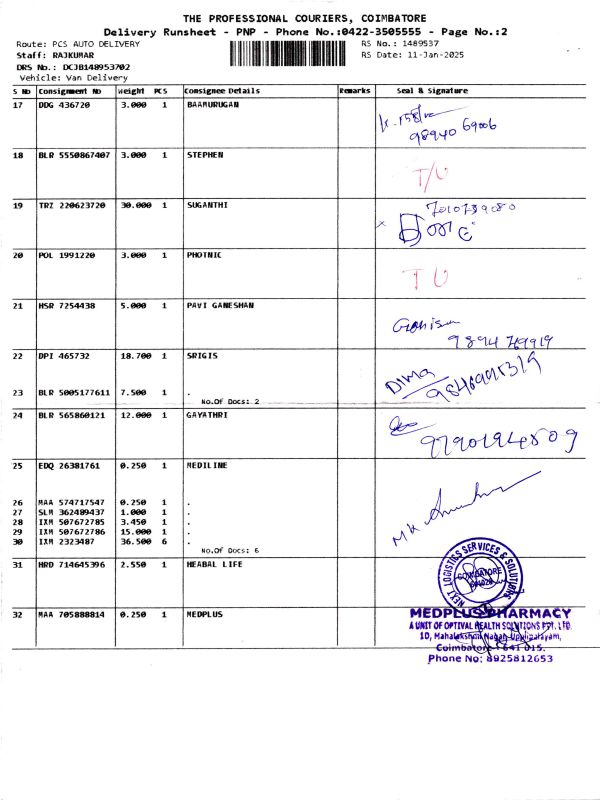 THE PROFESSIONAL COURIERS, COIMBATORE
Delivery Runsheet - PNP - Phone No.:0422-3505555 - Page No.:2
Route: PCS AUTO DELIVERY
RS No.: 1489537
Staff: RAJKUMAR
RS Date: 11-Jan-2025
DRS No.: DCJB148953702
Vehicle: Van Delivery
S No Consignment No Weight PCS Consignee Details Remarks Seal & Signature
17 DDG 436720 3.000 1 BAAMURUGAN
98940 69006
18 BLR 5550867407 3.000 1 STEPHEN
T/U
19 TRZ 220623720 30.000 1 SUGANTHI
7010739080
20 POL 1991220 3.000 1 PHOTNIC
T U
21 HSR 7254438 5.000 1 PAVI GANESHAN
9894 769919
22 DPI 465732 18.700 1 SRIGIS
23 BLR 5005177611 7.500 1 .
No.Of Docs: 2
24 BLR 565860121 12.000 1 GAYATHRI
25 EDQ 26381761 0.250 1 MEDILINE
26 MAA 574717547 0.250 1 .
27 SLM 362489437 1.000 1 .
28 IXM 507672785 3.450 1 .
29 IXM 507672786 15.000 1 .
30 IXM 2323487 36.500 6 .
No.Of Docs: 6
31 HRD 714645396 2.550 1 HEABAL LIFE
NEXT LOGISTICS SERVICES & SOLUTIONS
COIMBATORE
32 MAA 705888814 0.250 1 MEDPLUS
MEDPLUS PHARMACY
A UNIT OF OPTIVAL HEALTH SOLUTIONS PVT. LTD.
10, Mahalakshmi Nagar, Uppilipalayam,
Coimbatore - 641 015.
Phone No: 8925812653